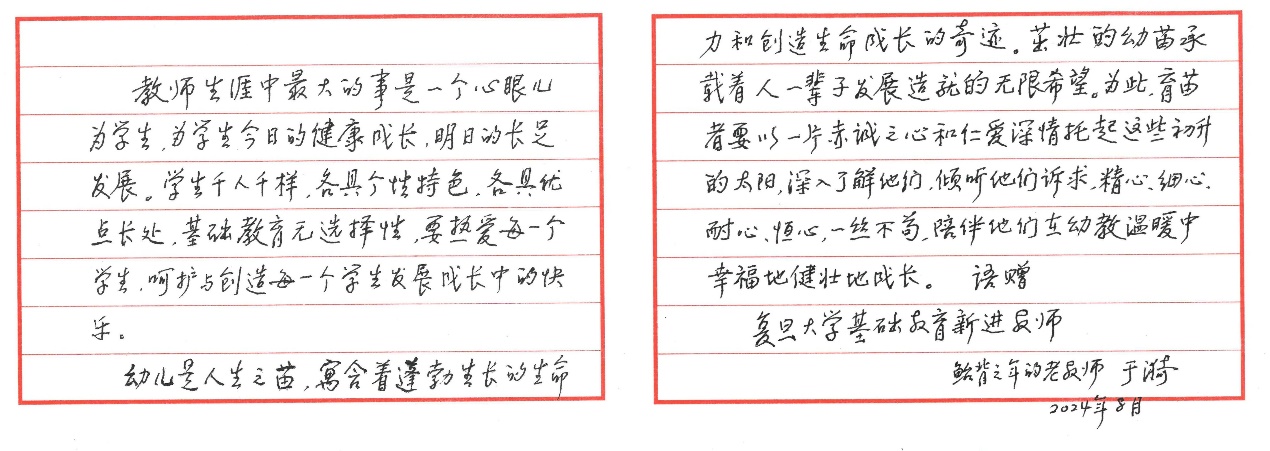 教师生涯中最大的事是一个心眼儿
为学生,为学生今日的健康成长,明日的长足
发展。学生千人千样,各具个性特色,各具优
点长处,基础教育无选择性,要热爱每一个
学生,呵护与创造每一个学生发展成长中的快
乐。
幼儿是人生之苗,寓含着蓬勃生长的生命
力和创造生命成长的奇迹。茁壮的幼苗承
载着人一辈子发展造就的无限希望。为此,育苗
者要以一片赤诚之心和仁爱深情托起这些初升
的太阳,深入了解他们,倾听他们诉求,精心、细心、
耐心、恒心,一丝不苟,陪伴他们在幼教温暖中
幸福地健壮地成长。 语赠
复旦大学基础教育新进教师
鲐背之年的老教师 于漪
2024年8月